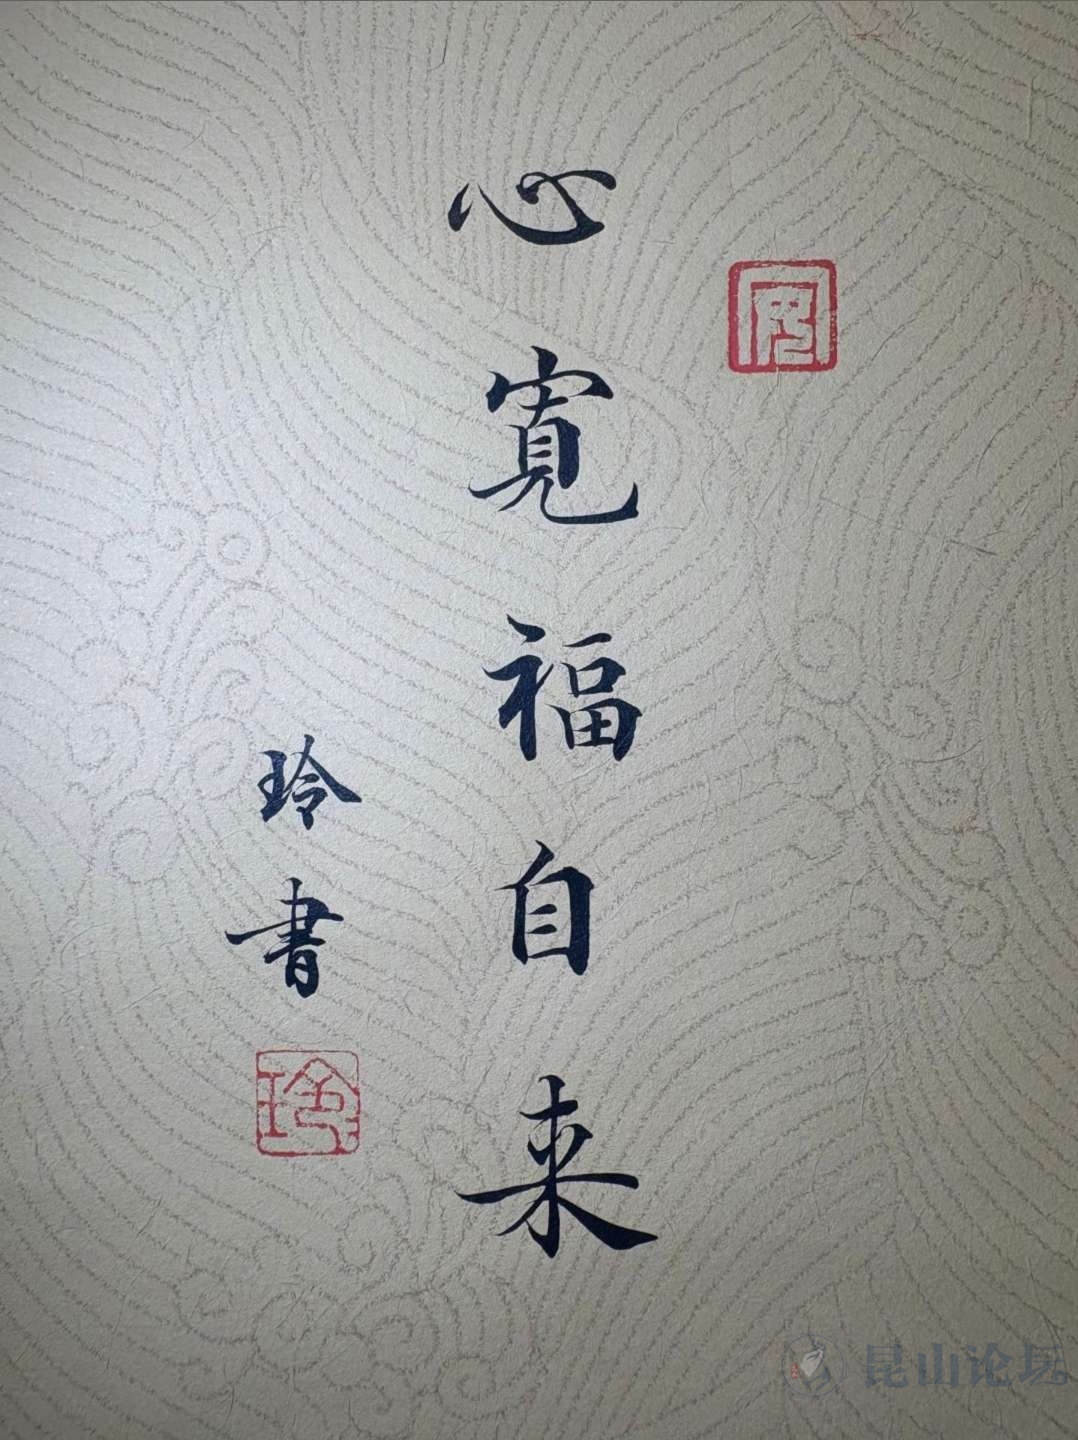 心寛福自来
玲書
玲
昆山论坛